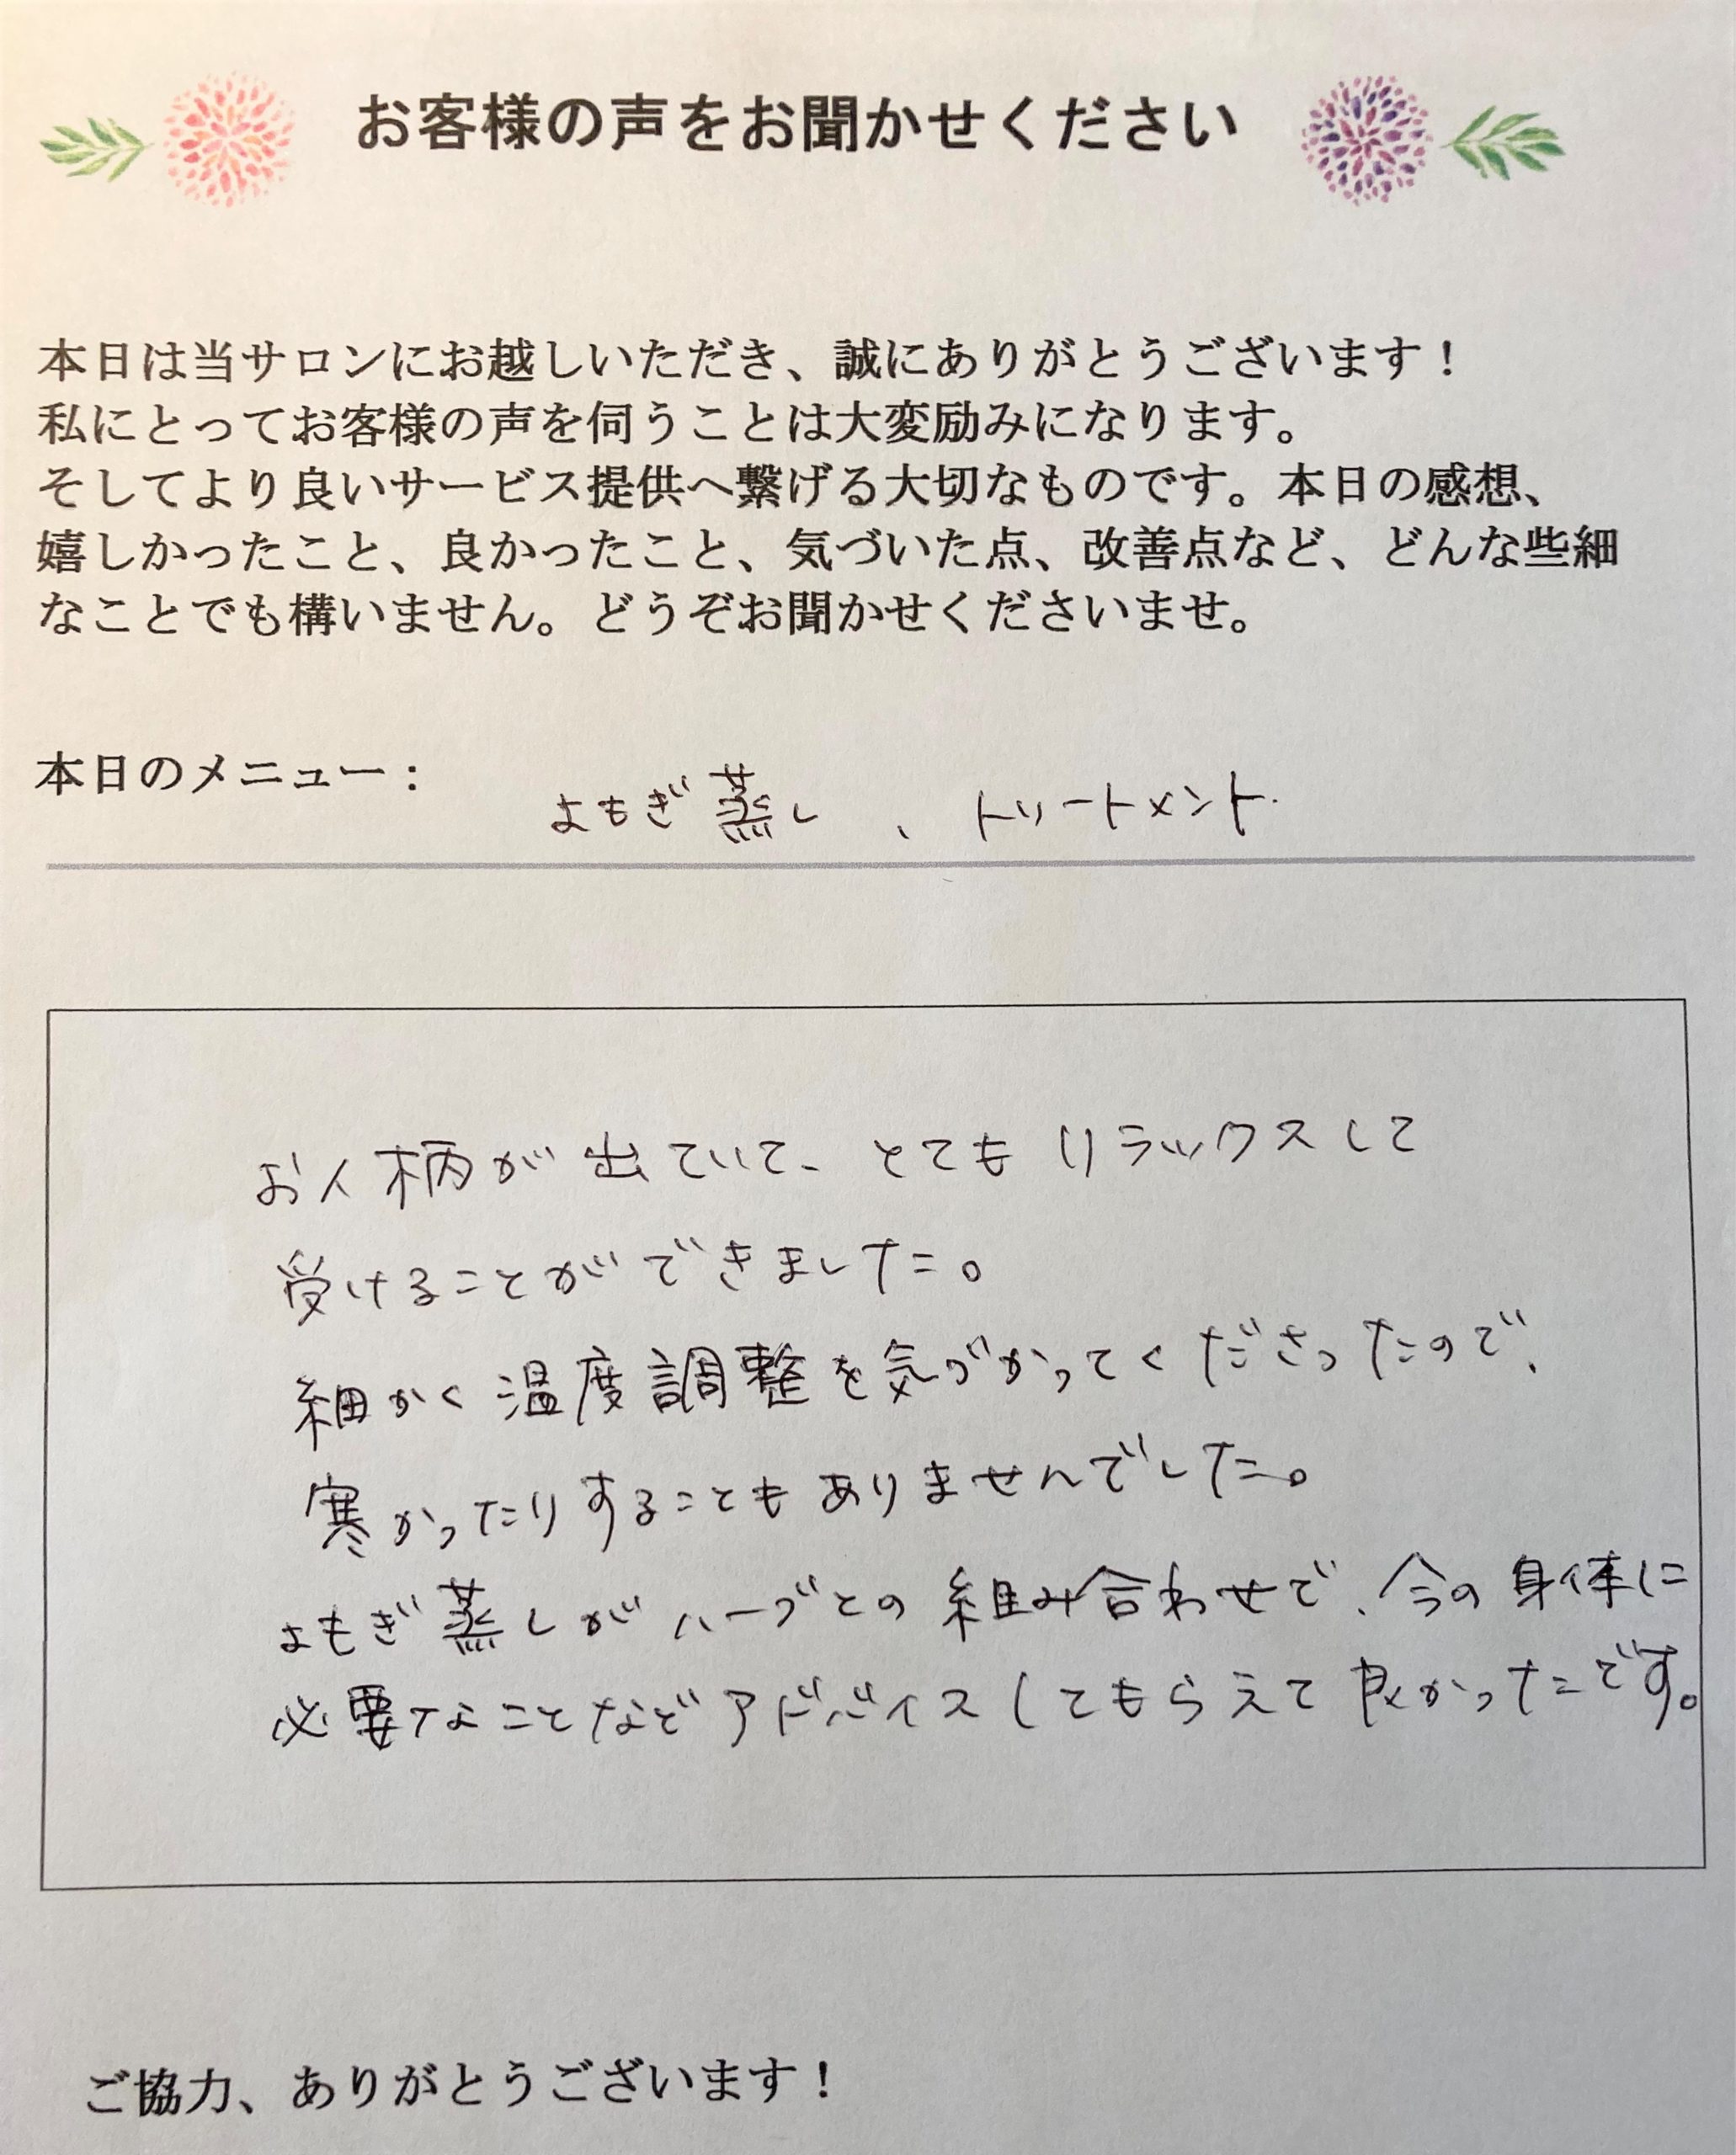 お客様の声をお聞かせください
本日は当サロンにお越しいただき、誠にありがとうございます！
私にとってお客様の声を伺うことは大変励みになります。
そしてより良いサービス提供へ繋げる大切なものです。本日の感想、
嬉しかったこと、良かったこと、気づいた点、改善点など、どんな些細
なことでも構いません。どうぞお聞かせくださいませ。
本日のメニュー： よもぎ蒸し、トリートメント.
お人柄が出ていて、とてもリラックスして
受けることができました。
細かく温度調整を気づかってくださったので、
寒かったりすることもありませんでした。
よもぎ蒸しがハーブとの組み合わせで、今の身体に
必要なことなどアドバイスしてもらえて良かったです。
ご協力、ありがとうございます！